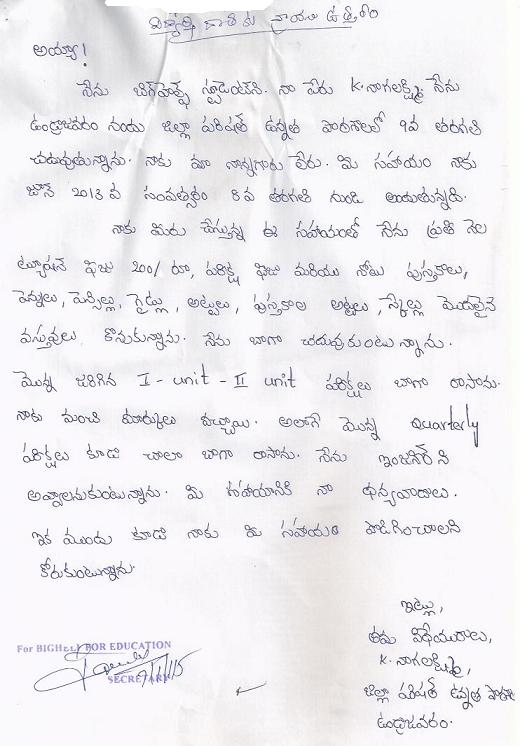 విద్యార్థి దాతకు వ్రాయు ఉత్తరం
అయ్యా!
నేను బిగ్‌హెల్ప్ స్టూడెంట్‌ని. నా పేరు K. నాగలక్ష్మి. నేను
ఉండ్రాజవరం నందు జిల్లా పరిషత్ ఉన్నత పాఠశాలలో 9వ తరగతి
చదువుతున్నాను. నాకు మా నాన్నగారు లేరు. మి సహాయం నాకు
జూన్ 2013 వ సంవత్సరం 8 వ తరగతి నుండి అందుతున్నది.
నాకు మిరు చేస్తున్న ఈ సహాయంతో నేను ప్రతి నెల
ట్యూషన్ ఫిజు 200/ రూ, పరిక్ష ఫిజు మరియు నోటు పుస్తకాలు,
పెన్నులు, పెన్సిల్లు, గైడ్లు, అట్టలు, పుస్తకాల అట్టలు, స్కేల్లు మొదలైన
వస్తువులు కొనుకున్నాను. నేను బాగా చదువుకుంటున్నాను.
మొన్న జరిగిన I - unit - II unit పరిక్షలు బాగా రాసాను.
నాకు మంచి మార్కులు వచ్చాయి. అలాగే మొన్న Quarterly
పరిక్షలు కూడా చాలా బాగా రాసాను. నేను ఇంజనీర్ ని
అవ్వాలనుకుంటున్నాను. మి సహాయానికి నా ధన్యవాదాలు.
ఇక ముందు కూడా నాకు మి సహాయం పొడిగించాలని
కోరుకుంటున్నాను.
ఇట్లు,
తమ విధేయురాలు,
K. నాగలక్ష్మి,
జిల్లా పరిషత్ ఉన్నత పాఠశాల
ఉండ్రాజవరం.
For BIGHELP FOR EDUCATION
SECRETARY